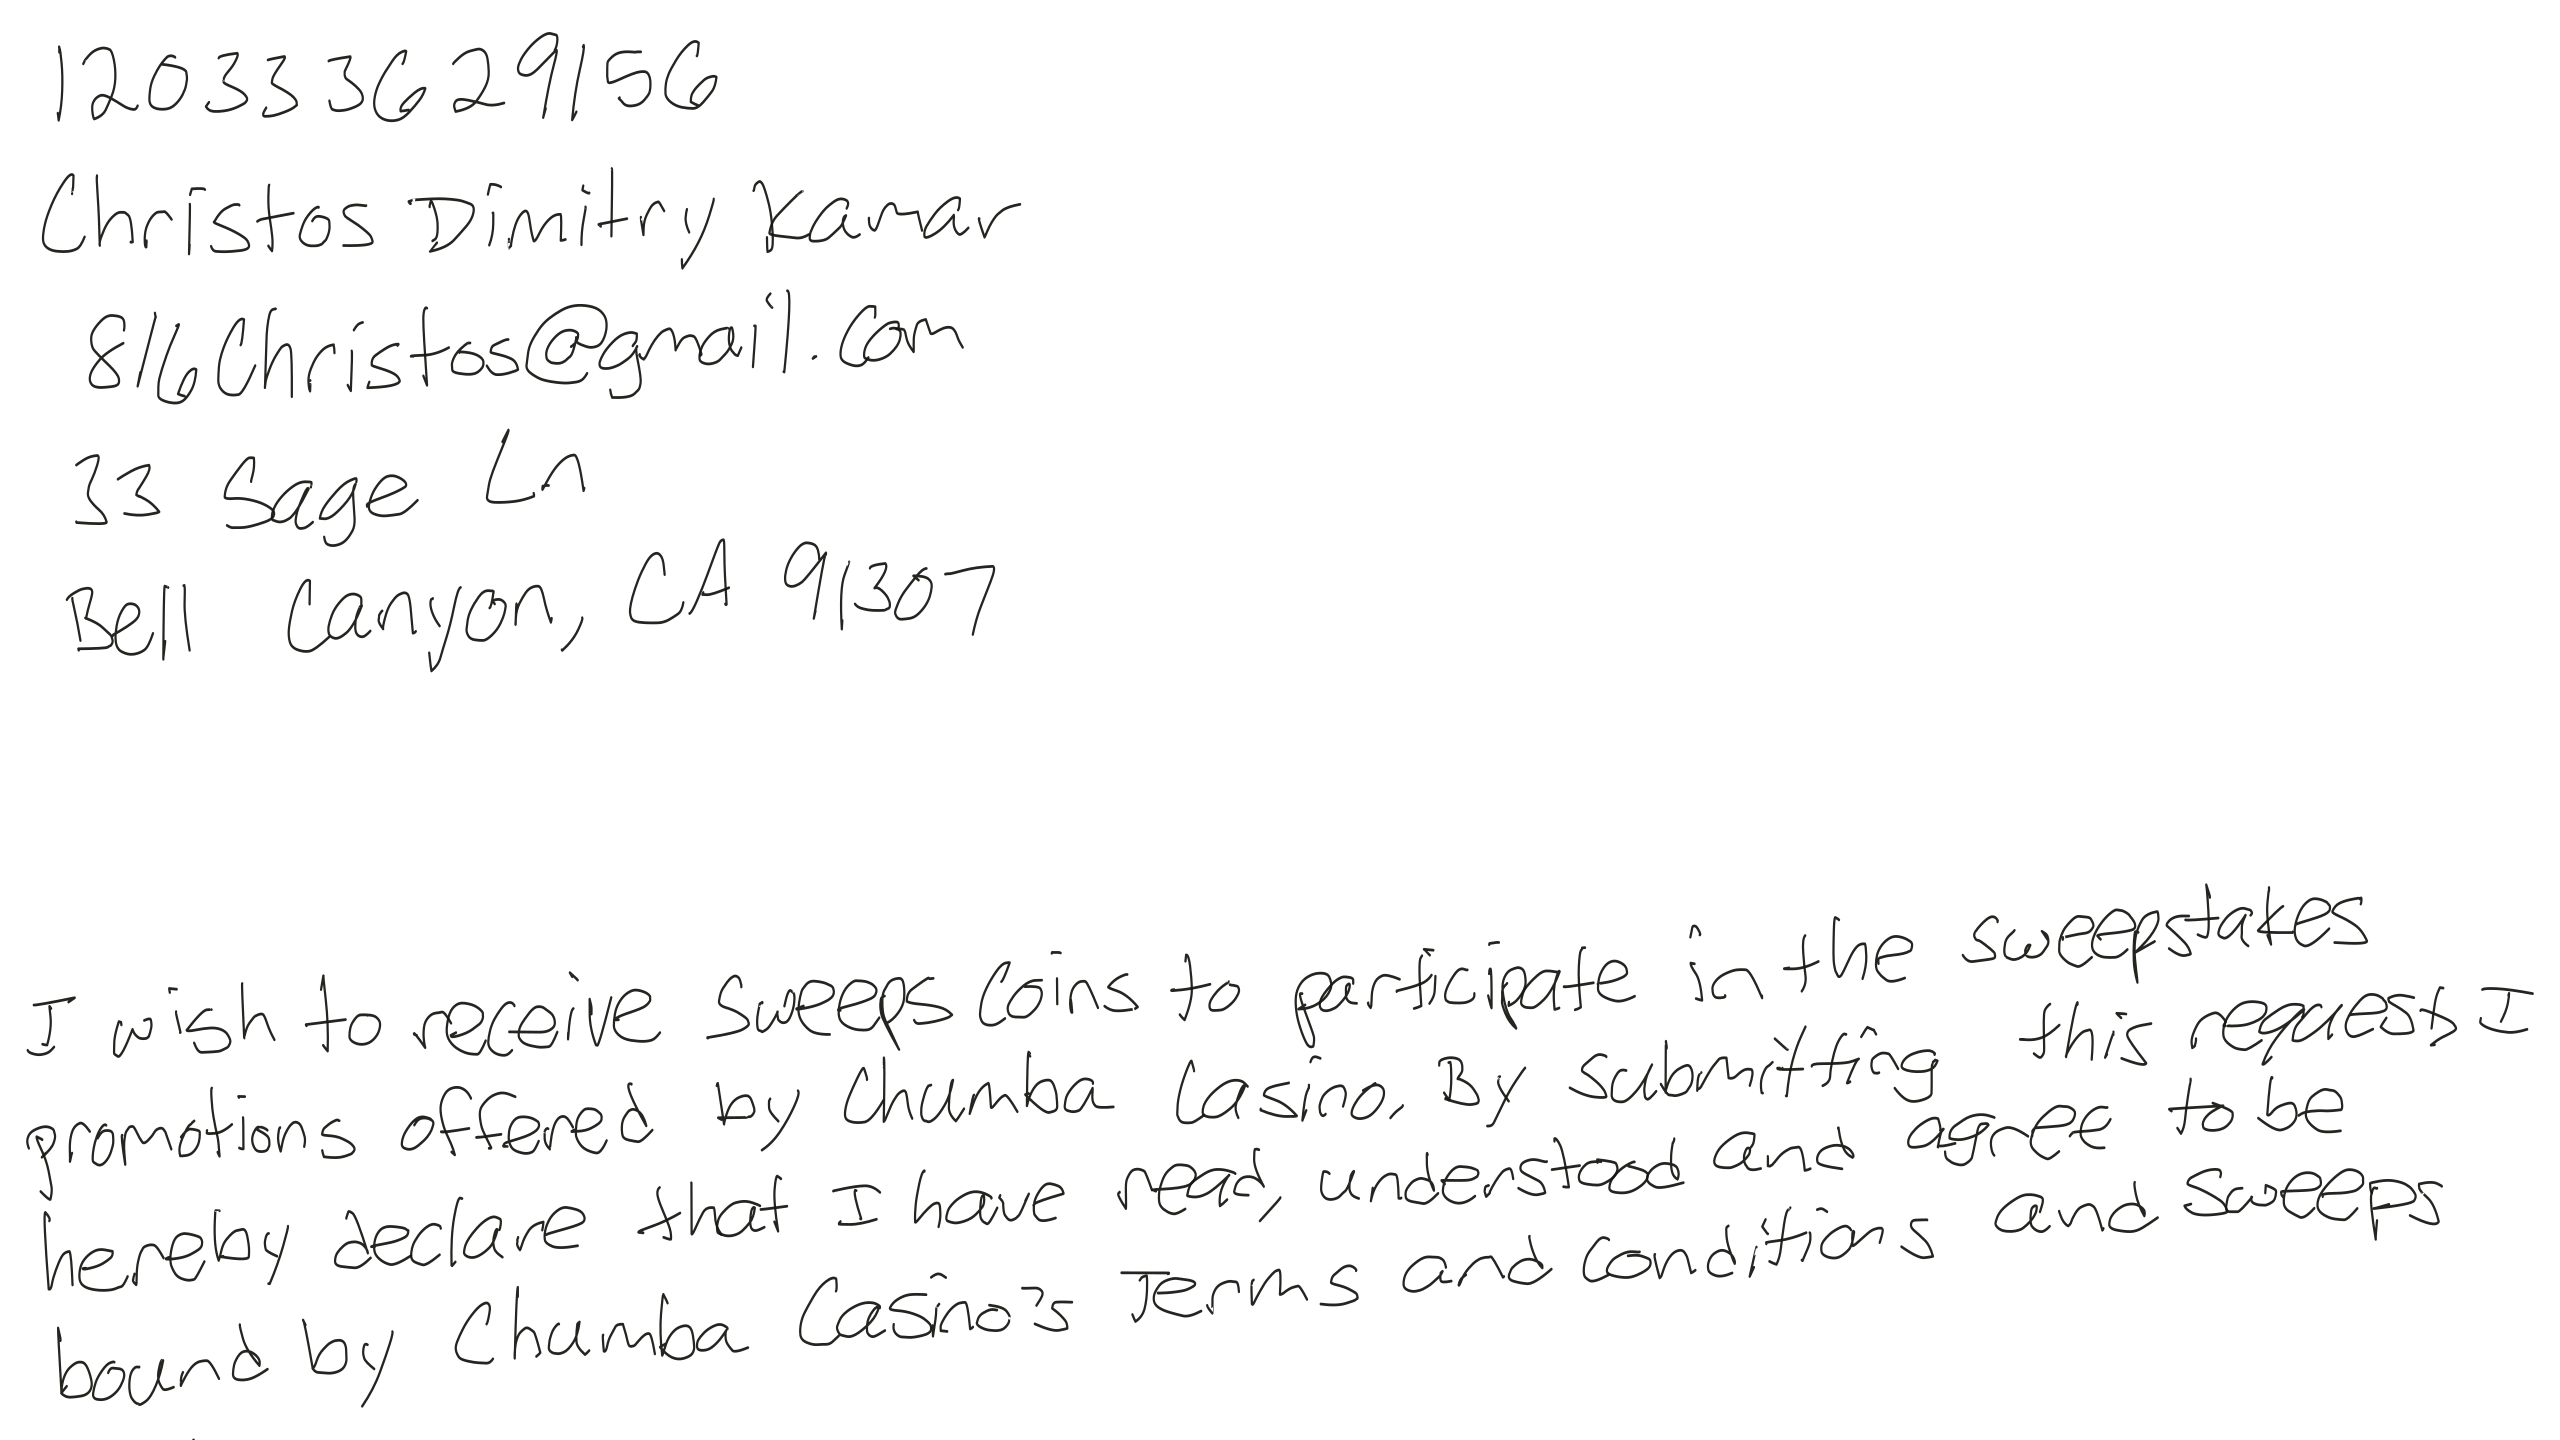 120333629156
Christos Dimitry Kamar
816Christos@gmail.com
33 Sage Ln
Bell Canyon, CA 91307
I wish to receive sweeps coins to participate in the sweepstakes
promotions offered by Chumba Casino. By submitting this request, I
hereby declare that I have read, understood and agree to be
bound by Chumba Casino's Terms and conditions and sweeps